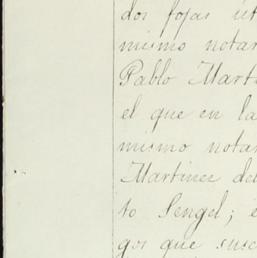 dos fojas út
mismo notar
Pablo Mart
el que en la
mismo notar
Martinez del
to Sengel; é
gos que susc